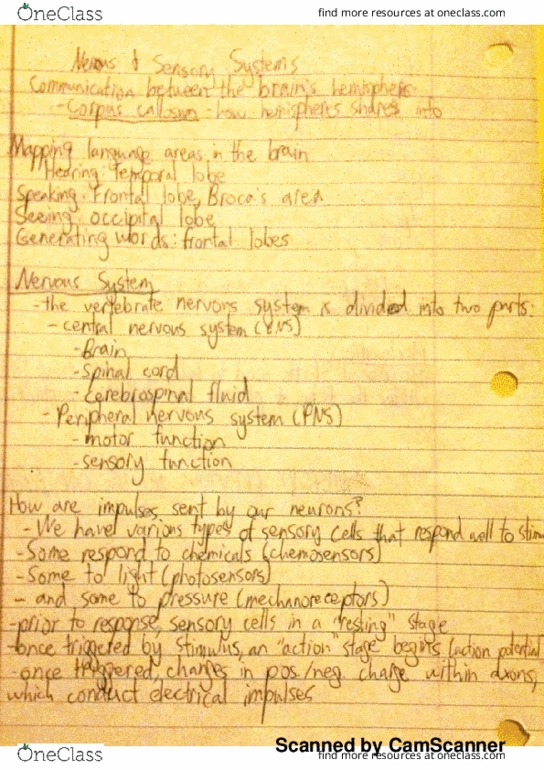 OneClass
find more resources at oneclass.com
Nervous & Sensory Systems
Communication between the brain's hemispheres
- Corpus callosum - how hemispheres shares info
Mapping language areas in the brain
Hearing: temporal lobe
Speaking: Frontal lobe, Broca's area
Seeing: occipital lobe
Generating words: frontal lobes
Nervous System
- the vertebrate nervous system is divided into two parts:
- central nervous system (CNS)
- Brain
- Spinal cord
- cerebrospinal fluid
- Peripheral nervous system (PNS)
- motor function
- sensory function
How are impulses sent by our neurons?
- We have various types of sensory cells that respond well to stim
- Some respond to chemicals (chemosensors)
- Some to light (photosensors)
- and some to pressure (mechanoreceptors)
- prior to response, sensory cells in a "resting" stage
- once triggered by stimulus, an "action" stage begins (action potential
- once triggered, changes in pos./neg. charge within axons,
which conduct electrical impulses
Scanned by CamScanner
OneClass
find more resources at oneclass.com